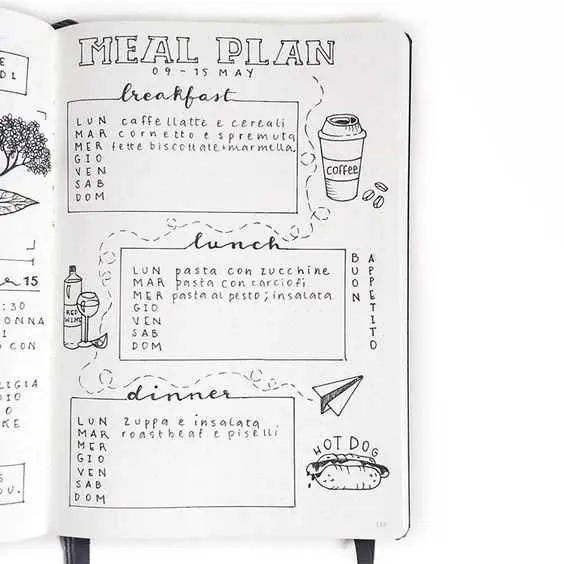 15
:30
ONNA
CON
LIGIA
DIO
O
KE
MEAL PLAN
09-15 MAY
breakfast
LUN caffellatte e cereali
MAR cornetto e spremuta
MER fette biscottate+marmella.
GIO
VEN
SAB
DOM
coffee
lunch
LUN pasta con zucchine
MAR pasta con carciofi
MER pasta al pesto; insalata
GIO
VEN
SAB
DOM
BUON
APPETITO
RED
WINE
dinner
LUN zuppa e insalata
MAR roastbeaf e piselli
MER
GIO
VEN
SAB
DOM
HOT DOG